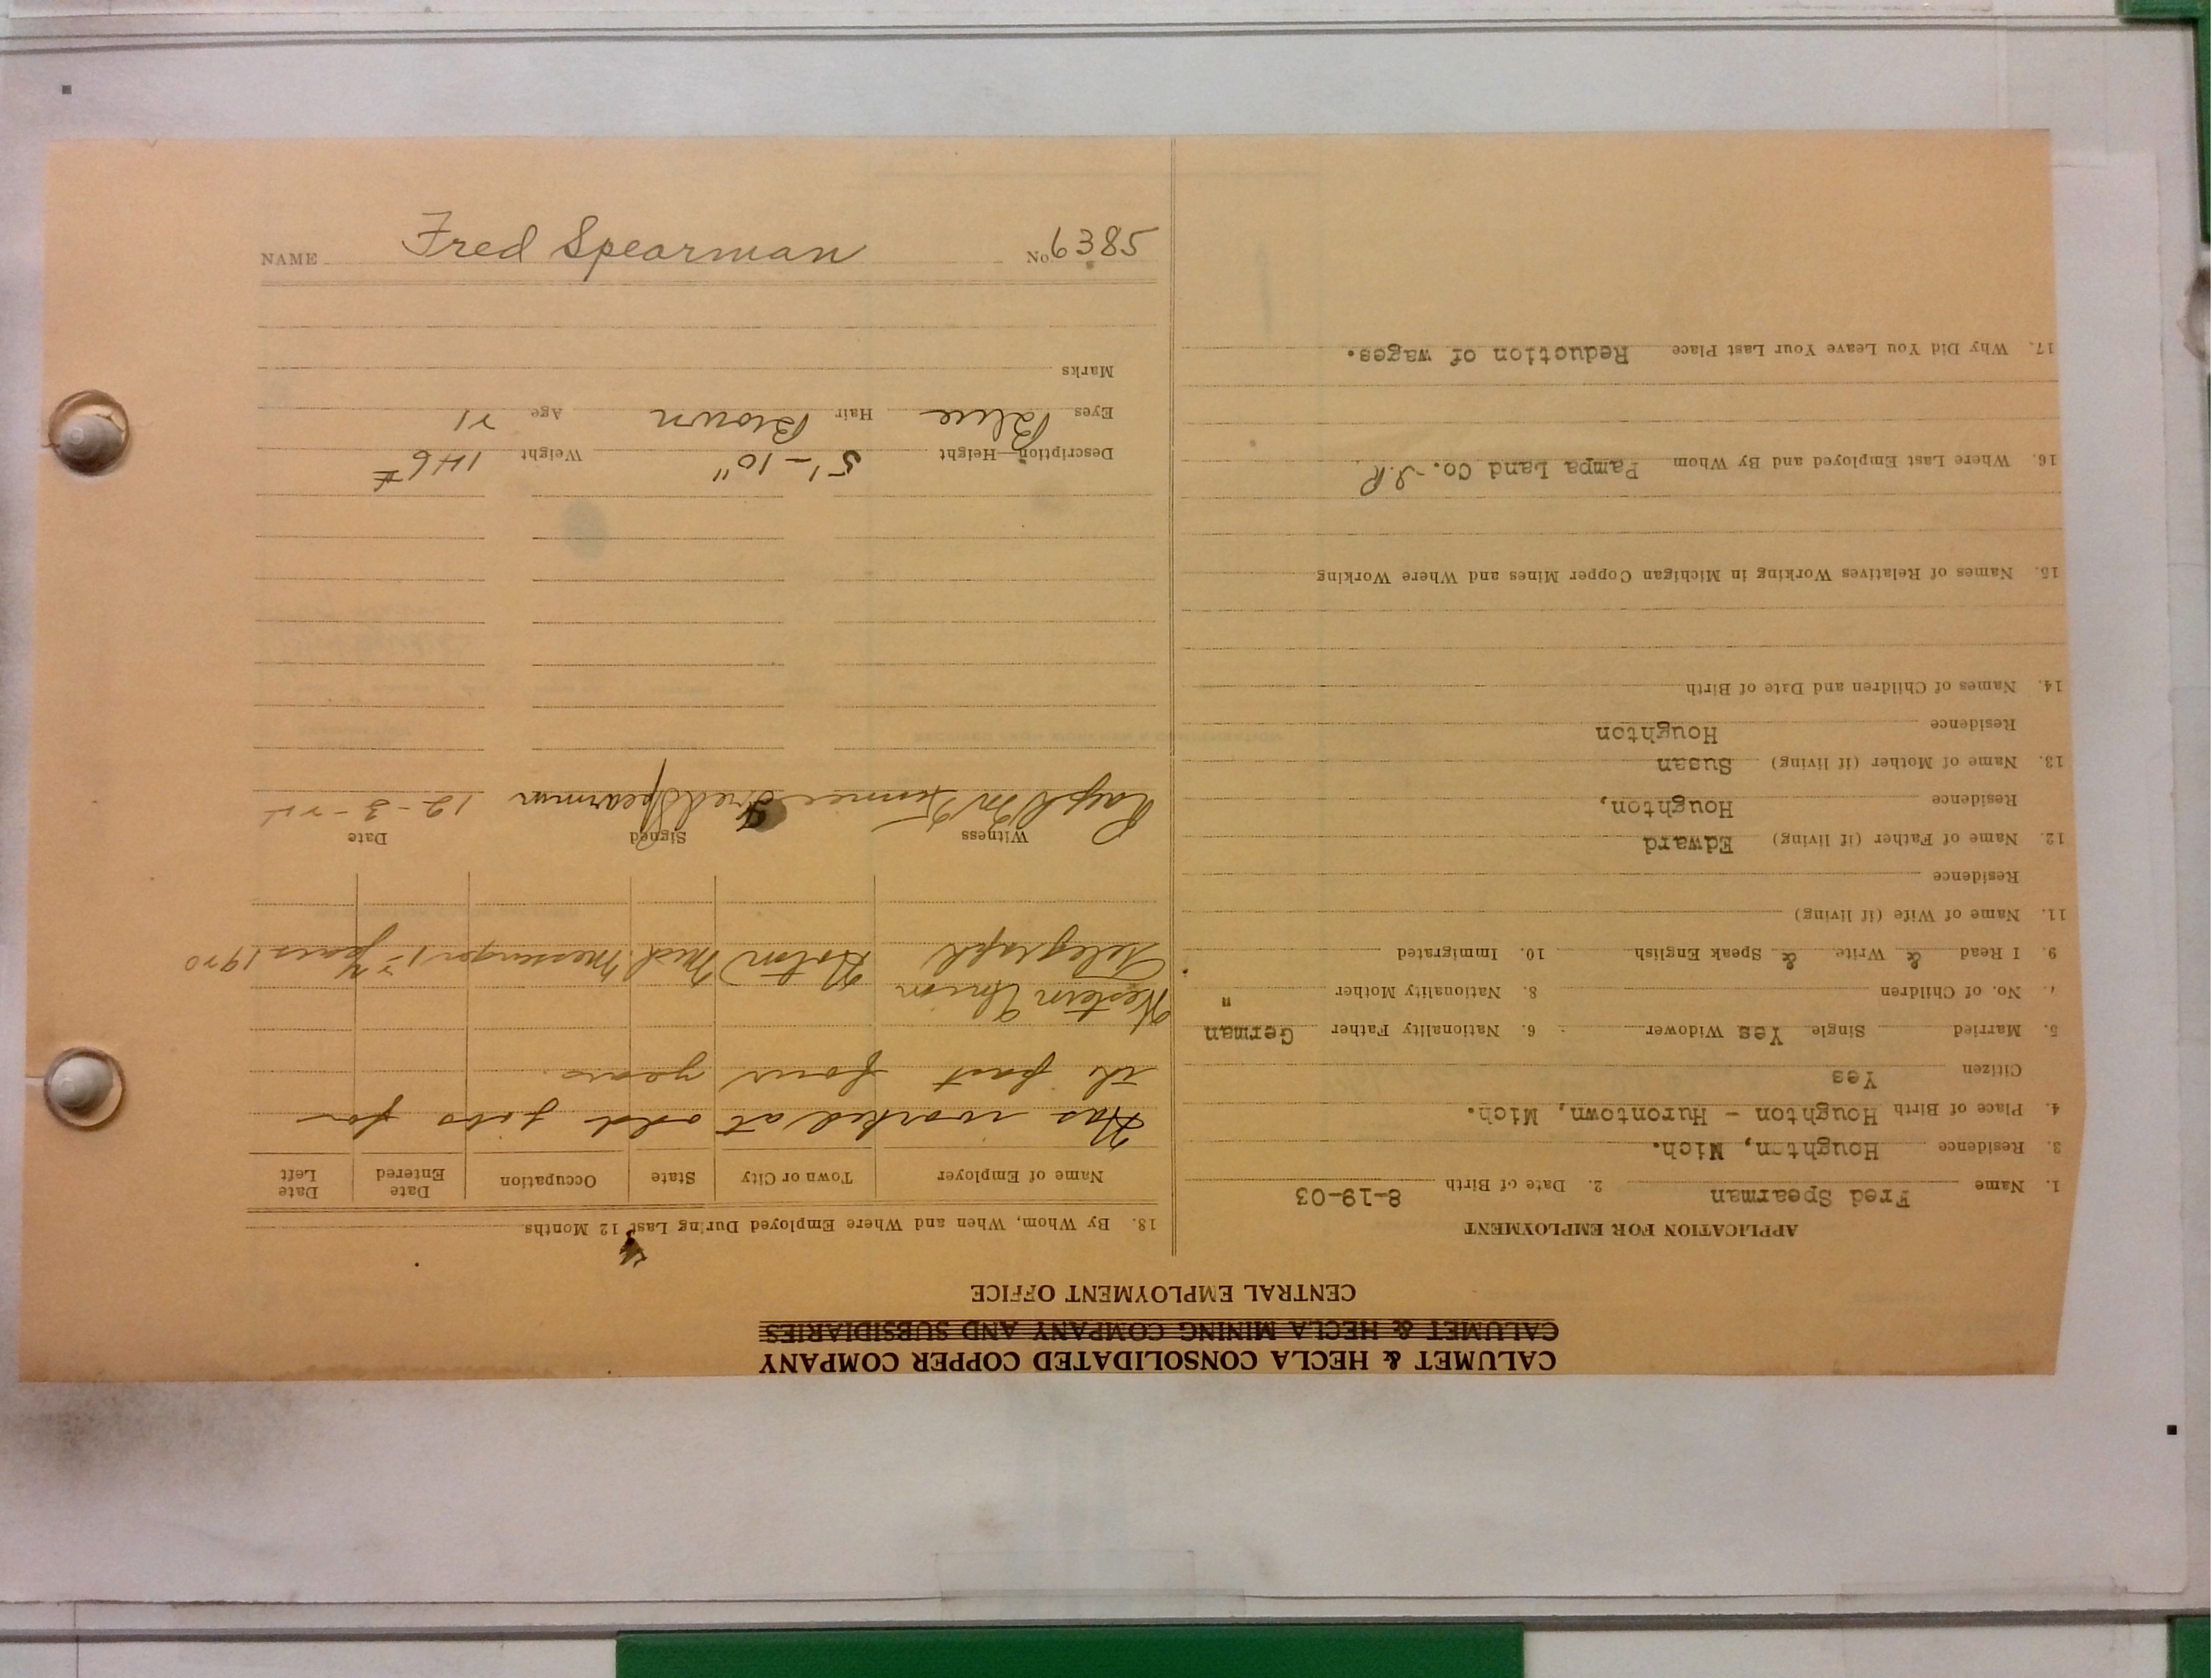 CALUMET & HECLA CONSOLIDATED COPPER COMPANY
CALUMET & HECLA MINING COMPANY AND SUBSIDIARIES
CENTRAL EMPLOYMENT OFFICE
APPLICATION FOR EMPLOYMENT
1. Name Fred Spearman 2. Date of Birth 8-19-03
3. Residence Houghton, Mich.
4. Place of Birth Houghton - Hurontown, Mich.
Citizen Yes
5. Married Single Yes Widower 6. Nationality Father German
7. No. of Children 8. Nationality Mother "
9. I Read & Write & Speak English 10. Immigrated
11. Name of Wife (if living)
Residence
12. Name of Father (if living) Edward
Residence Houghton,
13. Name of Mother (if living) Susan
Residence Houghton
14. Names of Children and Date of Birth
15. Names of Relatives Working in Michigan Copper Mines and Where Working
16. Where Last Employed and By Whom Pampa Land Co.
17. Why Did You Leave Your Last Place Reduction of wages.
18. By Whom, When and Where Employed During Last 12 Months
Name of Employer Town or City State Occupation Date Entered Date Left
Has worked at odd jobs for
the past four years.
Western Union
Telegraph Hoton Mich. Messenger years 1920
Witness Signed Date
Fred Spearman 12-3-
Description—Height 5'-10" Weight 146#
Eyes Blue Hair Brown Age 21
Marks
NAME Fred Spearman No 6385